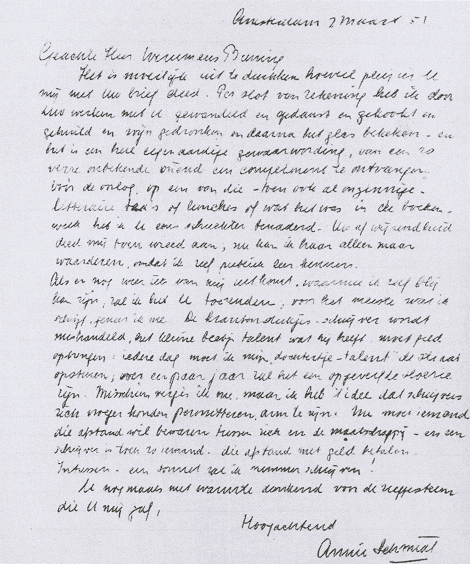 Amsterdam 2 maart 51
Geachte Heer Werumeus Buning
Het is moeilijk uit te drukken hoeveel plezier U
mij met Uw brief deed. Per slot van rekening heb ik door
Uw werken met U gewandeld en gedanst en gekookt en
gehuild en wijn gedronken en daarna het glas bekeken - en
het is een heel eigenaardige gewaarwording, van een zo
verre onbekende vriend een compliment te ontvangen.
Vóór de oorlog, op een van die - toen ook al onzinnige -
litteraire thé's of lunches of wat het was in de boeken-
week heb ik U eens schuchter benaderd. Uw afwijzendheid
deed mij toen wreed aan, nu kan ik haar alleen maar
waarderen, omdat ik zelf publiek leer kennen.
Als er nog weer iets van mij uitkomt, waarmee ik zelf blij
kan zijn, zal ik het U toezenden; voor het meeste wat ik
schrijf, geneer ik me. De krantenstukjes-schrijver wordt
mishandeld, het kleine beetje talent wat hij heeft, moet geld
opbrengen; iedere dag moet ik mijn talent de straat
opsturen; over een paar jaar zal het een hoertje
zijn. Misschien vergis ik me, maar ik heb 't idee dat schrijvers
zich vroeger konden permitteren, arm te zijn. Nu moet iemand
die afstand wil bewaren tussen zich en de maatschappij - en een
schrijver is toch zo iemand - die afstand met geld betalen.
Intussen - een sonnet zal ik nimmer schrijven!
U nogmaals met warmte dankend voor de
die U mij gaf,
Hoogachtend
Annie Schmidt